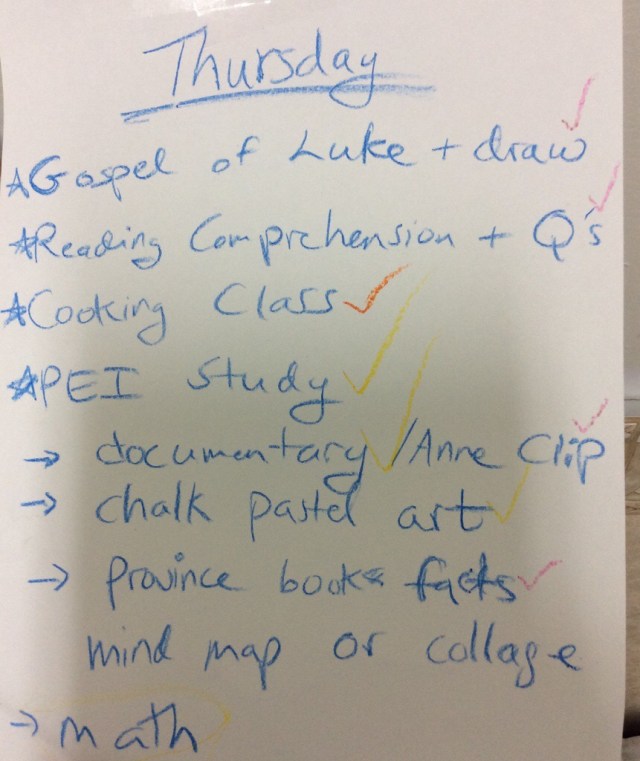 Thursday
☆Gospel of Luke + draw
☆Reading Comprehension + Q's
☆Cooking Class
☆PEI study
→ documentary/Anne Clip
→ chalk pastel art
→ province books facts
mind map or collage
→ math